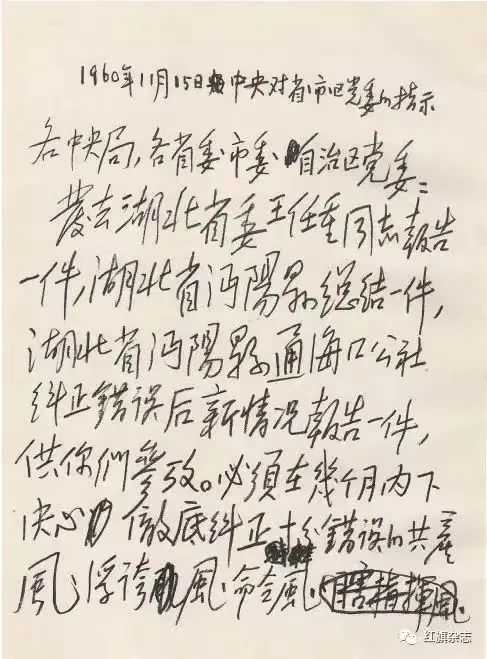 1960年11月15日中央对省市区党委的指示
各中央局,各省委市委自治区党委:
發去湖北省委王任重同志報告
一件,湖北省沔陽縣总结一件,
湖北省沔陽縣通海口公社
纠正錯误后新情况報告一件,
供你們參攷。必須在幾个月内下
决心徹底纠正十分錯误的共產
風、浮誇風、命令風、瞎指揮風
红旗杂志